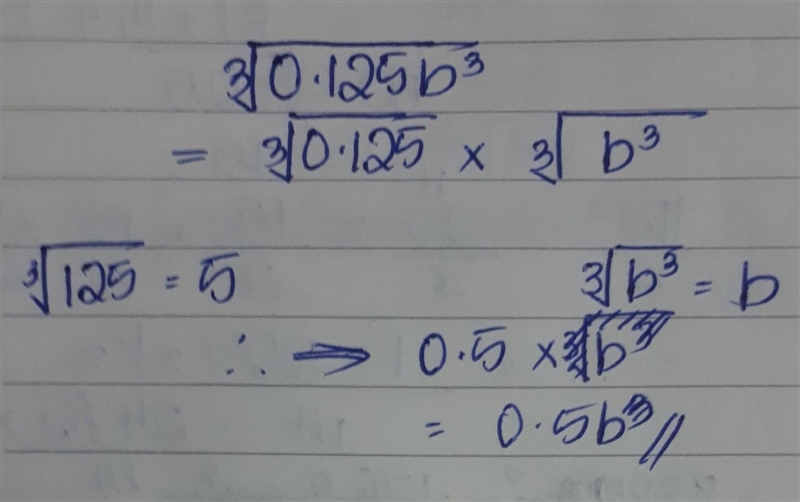 ∛0·125b³
= ∛0·125 × ∛b³
∛125 = 5 ∛b³ = b
∴ ⇒ 0·5 × b³
= 0·5b³ //